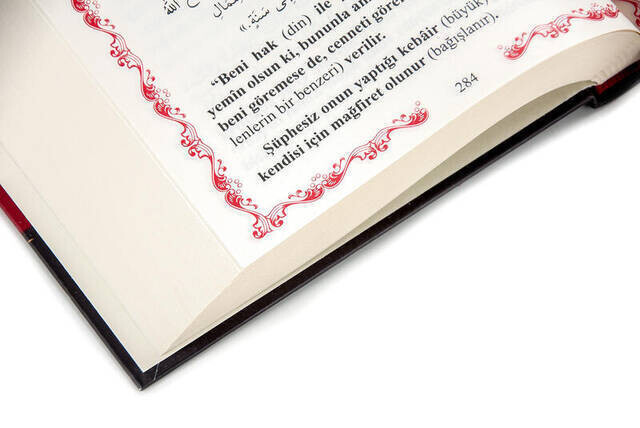 "Beni hak (din) ile
yemîn olsun ki, bununla
beni göremese de, cenneti
lenlerin bir benzeri) verilir.
Şüphesiz onun yaptığı kebâir (büyük)
kendisi için mağfiret olunur (bağışlanır).
284